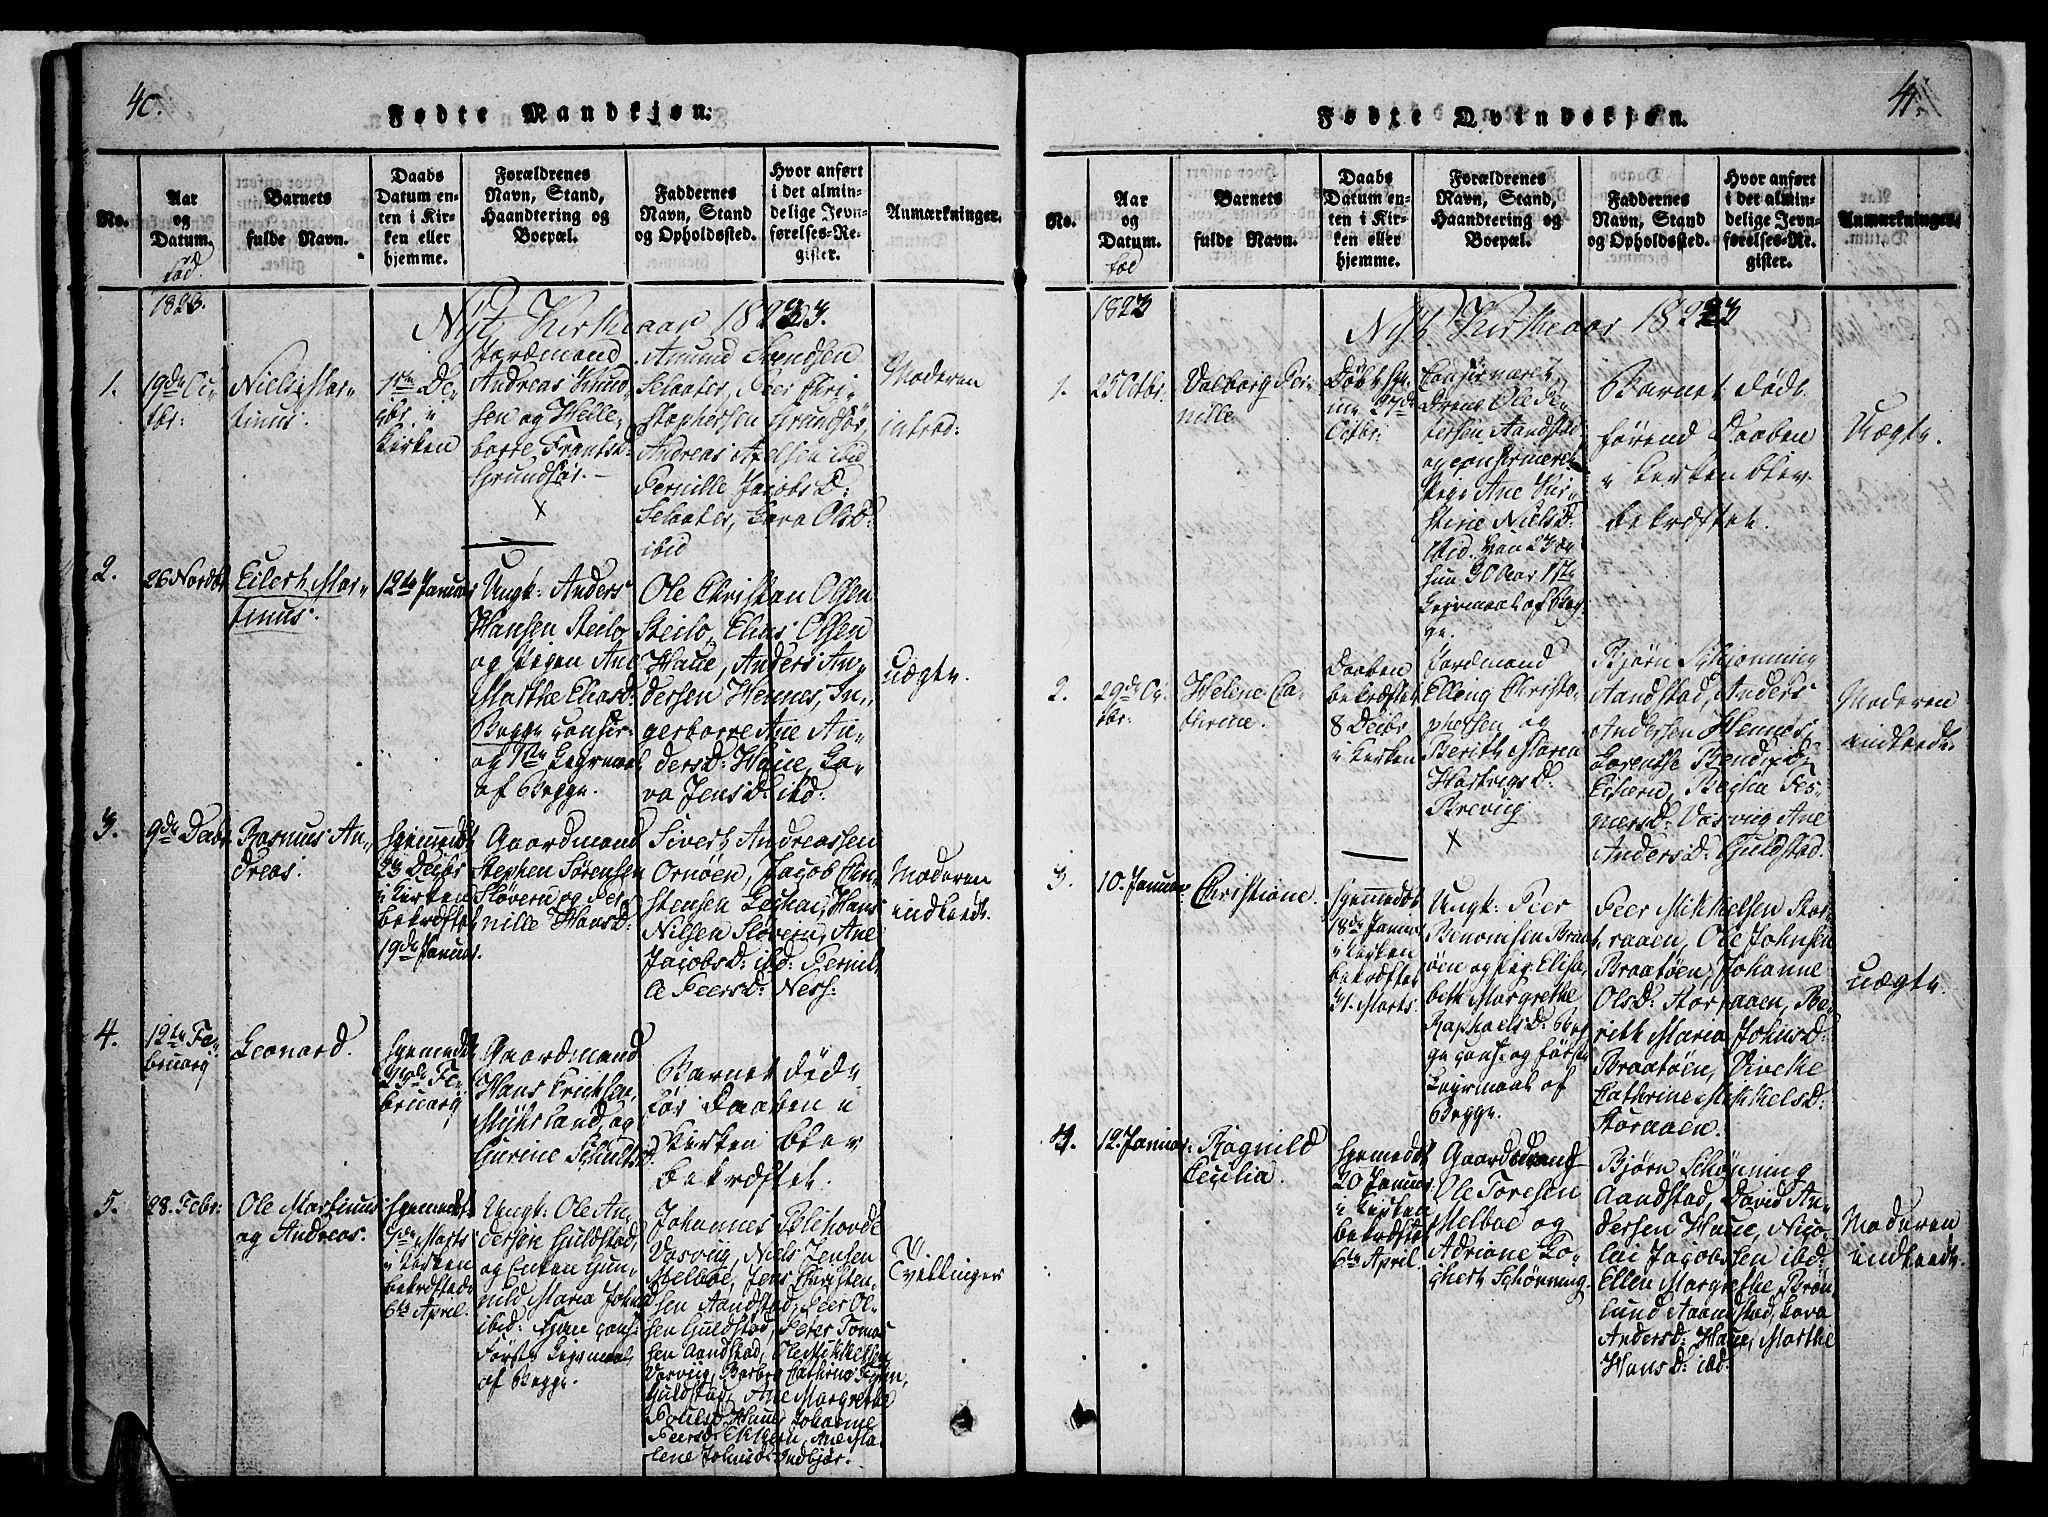 40.
Fødte Mandkjøn.
No.
Aar
og
Datum.
fød.
Barnets
fulde Navn.
Daabs
Datum en-
ten i Kir-
ken eller
hjemme.
Forældrenes
Navn, Stand,
Haandtering og
Boepæl.
Faddernes
Navn, Stand
og Opholdssted.
Hvor anført
i det almin-
delige Jevn-
førelses-Re-
gister.
Anmærkninger.
1823.
Nyt Kirkeaar 1823.
1.
19de Oc-
tbr.
Niels Mar-
tinus.
1ste De-
cbr. i
Kirken
Jordmand
Andreas Knud-
sen og Helle-
borre Frants D:
Grundfør.
Amund Svendsen
Selaater, Peer Chri-
stophersen Grundfør,
Andreas Axelsen ibid
Pernille Jacobs D:
Selaater, Lava Ols D:
ibid
Moderen
introd:
2.
26 Novbr
Eilert Mar-
tinus.
12te Januar
Ungk: Anders
Hansen Steilo
og Pigen Ane
Marthe Elias D:
Begge confir:
og 1ste Leiermaal
af Begge.
Ole Christian Olsen
Steilo, Elias Olsen
Haue, Anders An-
dersen Hennes, In-
geborre Ane An-
ders D: Haue, La-
va Jens D: ibd.
uægte.
3.
9de Decbr
Rasmus An-
dreas.
hjemmedøbt
23 Decbr
i Kirken
bekræftet
19de Januar.
Gaardmand
Stephen Sørensen
Sløveren og Per-
nille Hans D:
Sivert Andreassen
Ornøen, Jacob Chri-
stensen Leehai, Hans
Nilsen Sløveren, Ane
Jacobs D: ibd: Pernil-
le Peers D: Ness.
Moderen
indleedt.
4.
12te Fe-
bruary
Leonard.
hjemmedøbt
23de Fe-
bruary
Gaardmand
Hans Erichsen,
Myhrland, og
Gurine Schults D.
Barnet døde
før Daaben i
Kirken blev
bekræftet.
5.
28. Febr:
Ole Martinus
og Andreas.
hjemmedøbt
Marts
i Kirken
bekræftede
6te April.
Ungk: Ole An-
dersen Guldstad,
og Enken Gun-
nild Maria Johns D
ibid:
Første Leiermaal
af Begge.
Johannes Blihovde
Vasvig, Niels Jensen
Melboe, Jens Christen-
sen Aandstad, Peer Ol-
sen Guldstad, Peter Tomas-
sen Aandstad, Ole Mikkelsen
Vasvig, Barbra Cathrine
Guldstad, Ane Margrethe
Pouls D: Haue, Johanne
Peers D: Ekkern, Ane Ma-
lene Johns D: Indbjør.
Tvillinger
41.
Fødte Qvindekjøn.
No.
Aar
og
Datum.
fød
Barnets
fulde Navn.
Daabs
Datum en-
ten i Kir-
ken eller
hjemme.
Forældrenes
Navn, Stand,
Haandtering og
Boepæl.
Faddernes
Navn, Stand
og Opholdssted.
Hvor anført
i det almin-
delige Jevn-
førelses-Re-
gister.
Anmærkninger.
1823
Nyt Kirkeaar 1823
1.
25 Octbr.
Valborg Per-
nille
Døbt hje-
me 27de
Octbr:
Confirmeret
Dreng Ole Pe-
tersen Aandstad
og confirmeret
Pige Ane Kir-
stine Niels D:
ibid. han 23 og
hun 30 Aar 1ste
Leiermaal af Beg-
ge.
Barnet døde
førend Daaben
i Kirken blev
bekræftet.
Uægte.
2.
29de Oc-
tbr:
Helene Ca-
thrine.
Daaben
bekræftet
8 Decbr
i Kirken
Jordmand
Elling Christo-
phersen og
Berith Maria
Hartvigs D:
Brevig
Bjørn Schjønning
Aandstad, Anders
Andersen Hennes,
Lorentse Bendix D:
Ekern, Begha Tes-
mers D: Vasvig Ane
Anders D: Guldstad.
Moderen
indleedt.
3.
10. Januar
Christiane.
hjemmedøbt
18de Januar
i Kirken
bekræftet
31. Marts.
Ungk: Peer
Benomsen Braat-
øen og Pig: Elisa-
beth Margrethe
Raphaels D: Beg-
ge conf: og første
Leiermaal af
Begge.
Peer Mikkelsen Stor-
raaen, Ole Johnsen
Braatøen, Johanne
Ols D: Storraaen, Be-
rith Maria Johns D:
Braatøen, Vivekke
Cathrine Mikkels D:
Storaaen.
uægte.
4.
12. Januar:
Ragnild
Cecilia.
hjemmedøbt
20 Januar
i Kirken
bekræftet
6te April.
Gaardmand
Ole Toresen
Melboe og
Adriane Bo-
ghert Schønning.
Bjørn Schønning
Aandstad, David An-
dersen Haue, Nico-
lai Jacobsen ibd:
Ellen Margrethe Brøn-
lund Aaandstad, Lava
Anders D: Haue, Marthe
Hans D: ibd:
Moderen
indleedt.